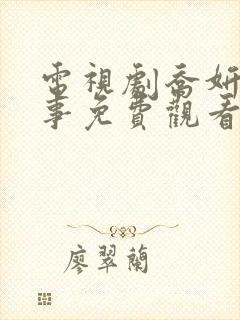 電視劇喬妍
事免費觀看
廖翠蘭